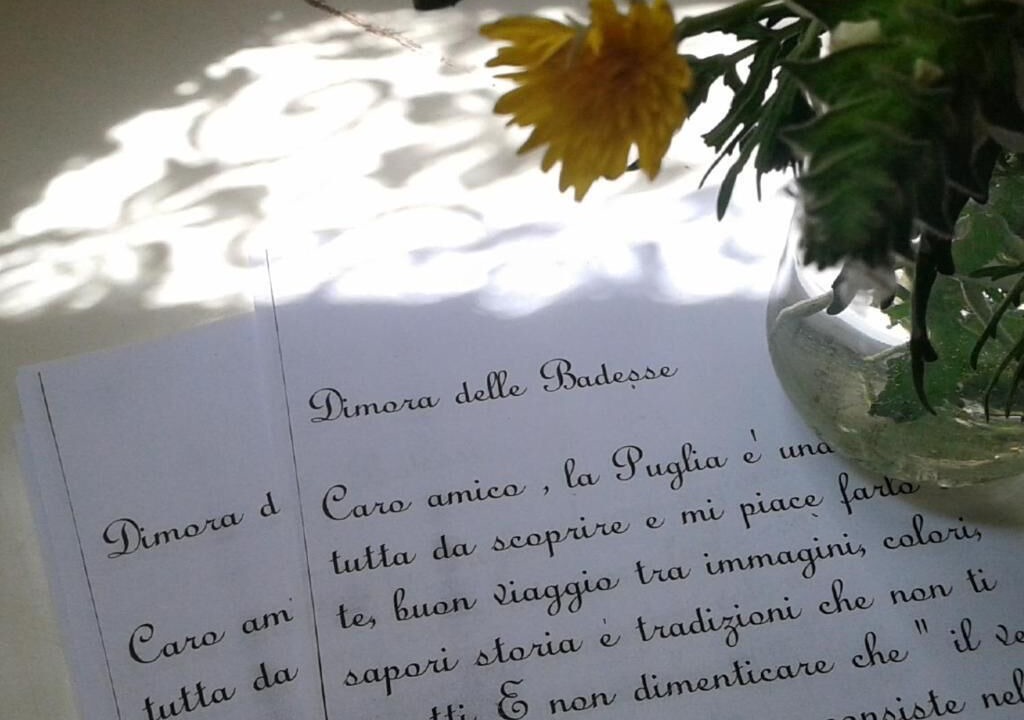 Dimora delle Badesse
Caro amico , la Puglia e' una
tutta da scoprire e mi piace farlo
te, buon viaggio tra immagini, colori,
sapori storia e' tradizioni che non ti
E non dimenticare che " il
nel
Dimora d
Caro am
tutta da